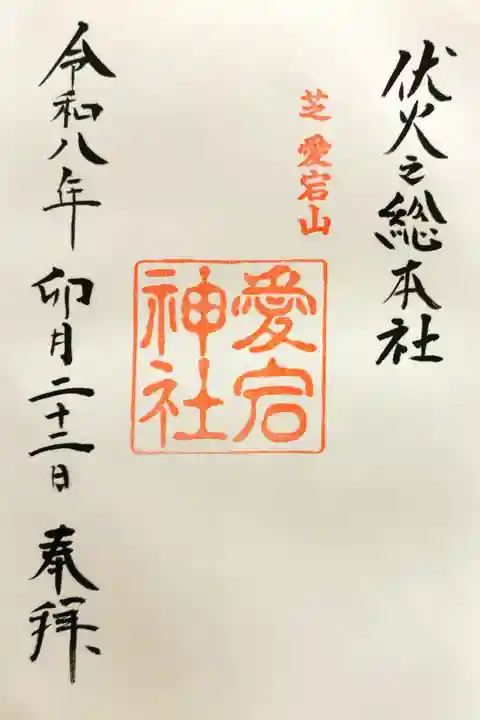 伏火之総本社
芝 愛宕山
愛宕
神社
令和八年 卯月二十二日 奉拝